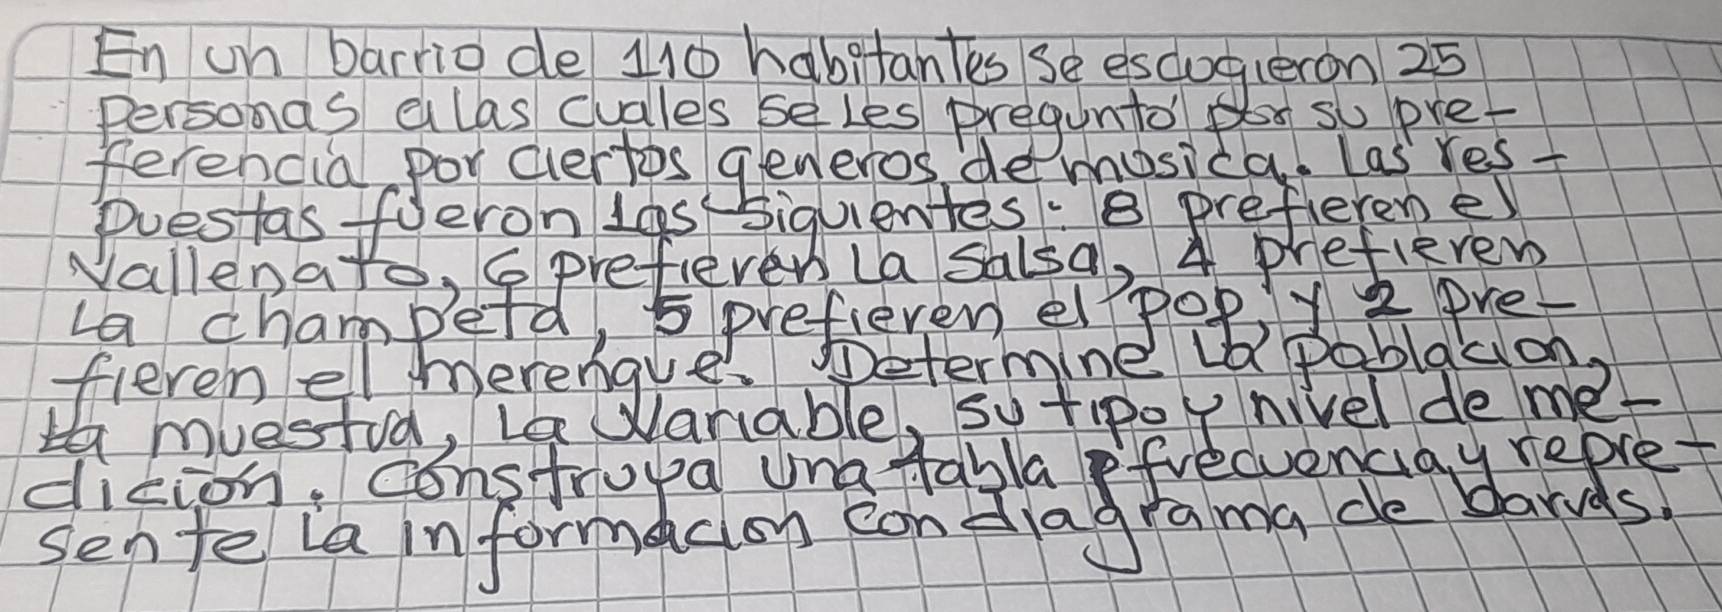 En un barrio de 110 habitantes se escogieron 25
personas a las cuales se les preguntó por su pre-
ferencia por ciertos generos de musica. Las res-
puestas fueron las siguientes: 8 prefieren el
Vallenato, 6 prefieren la salsa, 4 prefieren
la champeta, 5 prefieren el pop, y 2 pre-
fieren el merengue. Determine la poblacion,
la muestra, la Variable, su tipo y nivel de me-
dición. Construya una tabla frecuencia y repre-
sente la informacion con diagrama de barras.